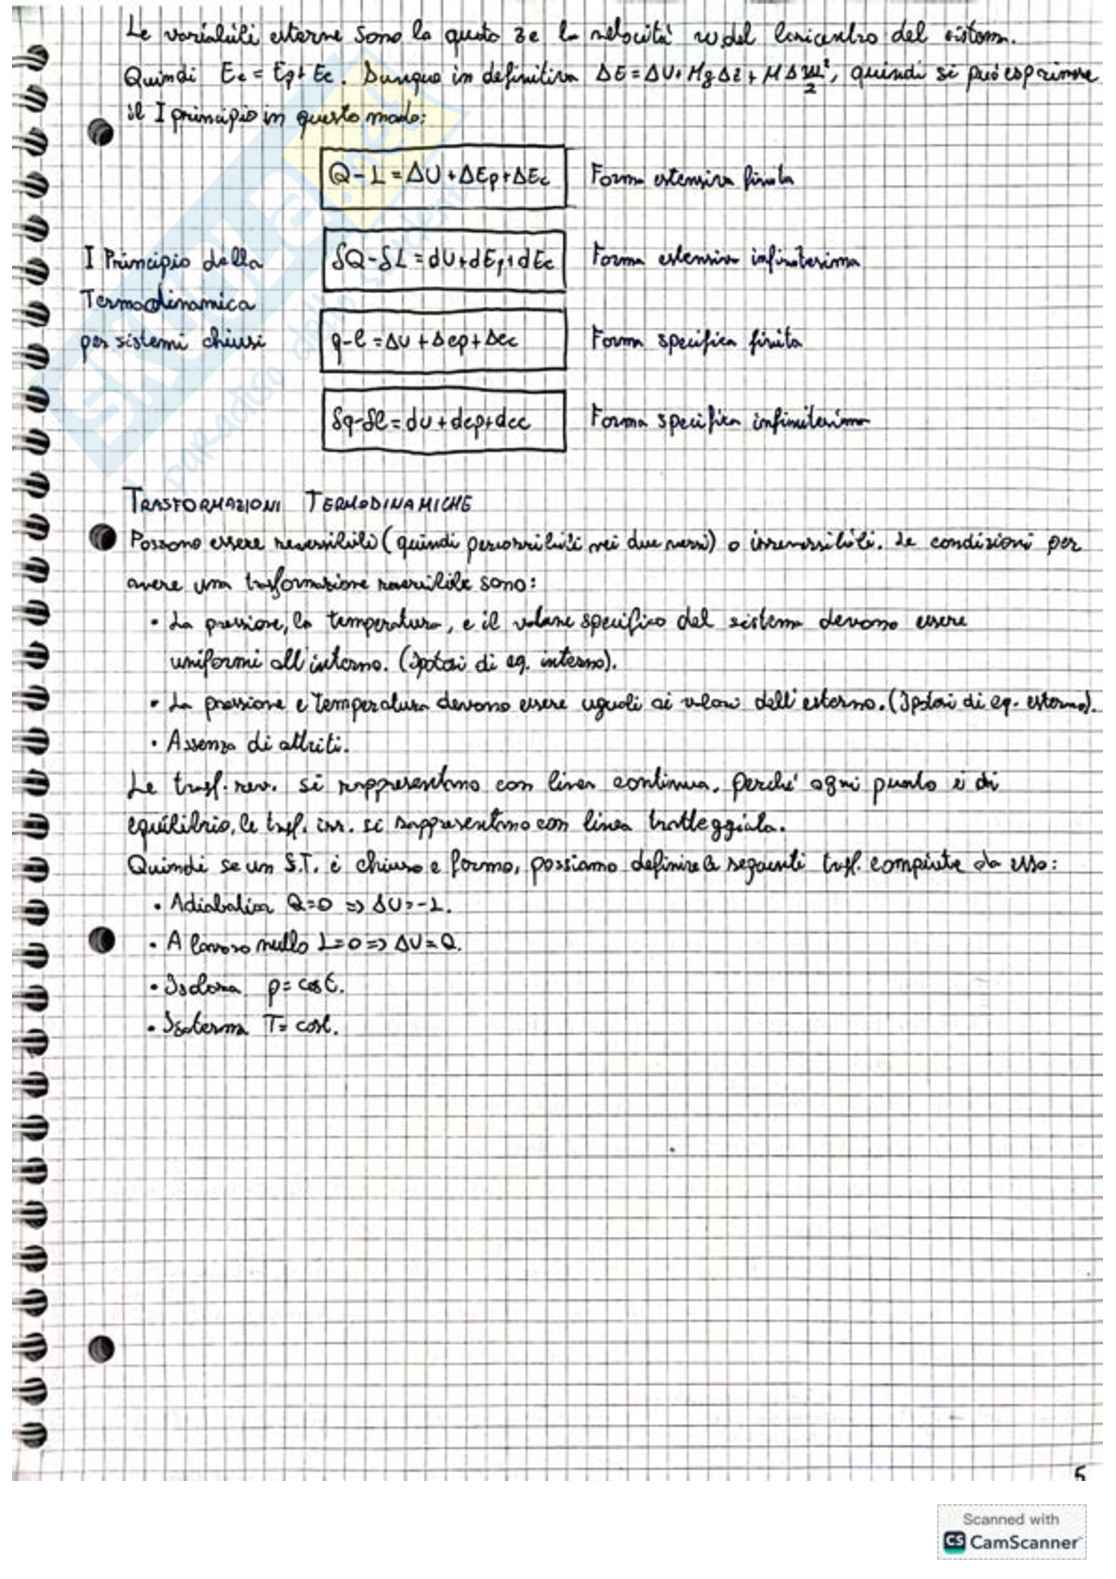 Le variabili esterne sono la quota z e la velocità w del baricentro del sistema.
Quindi Ee = Ep + Ec. Dunque in definitiva ΔE = ΔU + MgΔz + MΔw²/2, quindi si può esprimere
il I principio in questo modo:
Q - L = ΔU + ΔEp + ΔEc Forma estensiva finita
I Principio della
Termodinamica
per sistemi chiusi
δQ - δL = dU + dEp + dEc Forma estensiva infinitesima
q - l = Δu + Δep + Δec Forma specifica finita
δq - δl = du + dep + dec Forma specifica infinitesima
TRASFORMAZIONI TERMODINAMICHE
Possono essere reversibili (quindi percorribili nei due versi) o irreversibili. Le condizioni per
avere una trasformazione reversibile sono:
• La pressione, la temperatura, e il volume specifico del sistema devono essere
uniformi all'interno. (Ipotesi di eq. interno).
• La pressione e temperatura devono essere uguali ai valori dell'esterno. (Ipotesi di eq. esterno).
• Assenza di attriti.
Le trasf. rev. si rappresentano con linea continua, perché ogni punto è di
equilibrio, le trasf. irr. si rappresentano con linea tratteggiata.
Quindi se un S.T. è chiuso e fermo, possiamo definire le seguenti trasf. compiute da esso:
• Adiabatica Q=0 => ΔU=-L.
• A lavoro nullo L=0 => ΔU=Q.
• Isobara p= cost.
• Isoterma T= cost.
5
Scanned with
CS CamScanner